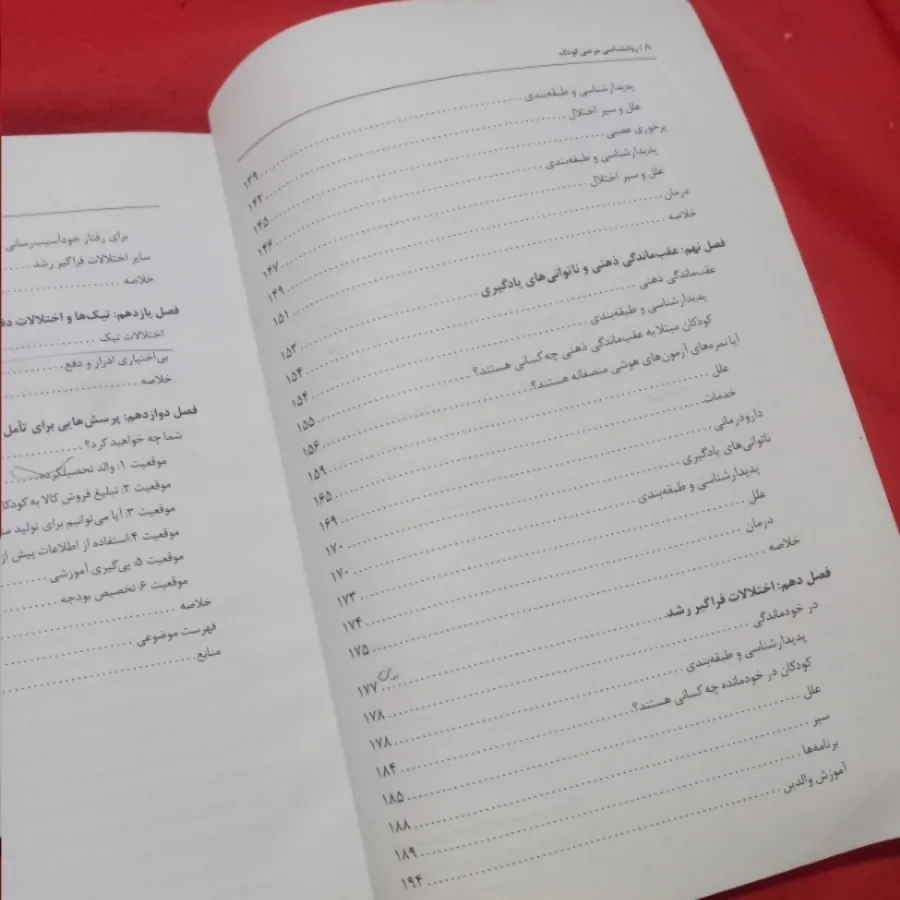 ۸ / روانشناسی مرضی کودک
پدیدارشناسی و طبقه‌بندی ........ ۱۳۹
علل و سیر اختلال ........ ۱۴۳
پرخوری عصبی ........ ۱۴۵
پدیدارشناسی و طبقه‌بندی ........ ۱۴۶
علل و سیر اختلال ........ ۱۴۷
درمان ........ ۱۴۹
خلاصه ........ ۱۵۱
فصل نهم: عقب‌ماندگی ذهنی و ناتوانی‌های یادگیری ........ ۱۵۳
عقب‌ماندگی ذهنی ........ ۱۵۴
پدیدارشناسی و طبقه‌بندی ........ ۱۵۴
کودکان مبتلا به عقب‌ماندگی ذهنی چه کسانی هستند؟ ........ ۱۵۵
آیا نمره‌های آزمون‌های هوشی منصفانه هستند؟ ........ ۱۵۶
علل ........ ۱۵۹
خدمات ........ ۱۶۵
دارودرمانی ........ ۱۶۹
ناتوانی‌های یادگیری ........ ۱۷۰
پدیدارشناسی و طبقه‌بندی ........ ۱۷۰
علل ........ ۱۷۳
درمان ........ ۱۷۴
خلاصه ........ ۱۷۵
فصل دهم: اختلالات فراگیر رشد ........ ۱۷۷
در خودماندگی ........ ۱۷۸
پدیدارشناسی و طبقه‌بندی ........ ۱۷۸
کودکان در خودمانده چه کسانی هستند؟ ........ ۱۸۴
علل ........ ۱۸۵
سیر ........ ۱۸۸
برنامه‌ها ........ ۱۸۹
آموزش والدین ........ ۱۹۴
برای رفتار خودآسیب‌رسانی
سایر اختلالات فراگیر رشد ........
خلاصه ........
فصل یازدهم: تیک‌ها و اختلالات دف
اختلالات تیک ........
بی‌اختیاری ادرار و دفع ........
خلاصه ........
فصل دوازدهم: پرسش‌هایی برای تأمل
شما چه خواهید کرد؟ ........
موقعیت ۱: والد تحصیلکرده ........
موقعیت ۲: تبلیغ فروش کالا به کودکا
موقعیت ۳: آیا می‌توانیم برای تولید مث
موقعیت ۴: استفاده از اطلاعات پیش از
موقعیت ۵: پی‌گیری آموزشی ........
موقعیت ۶: تخصیص بودجه ........
خلاصه ........
فهرست موضوعی ........
منابع ........